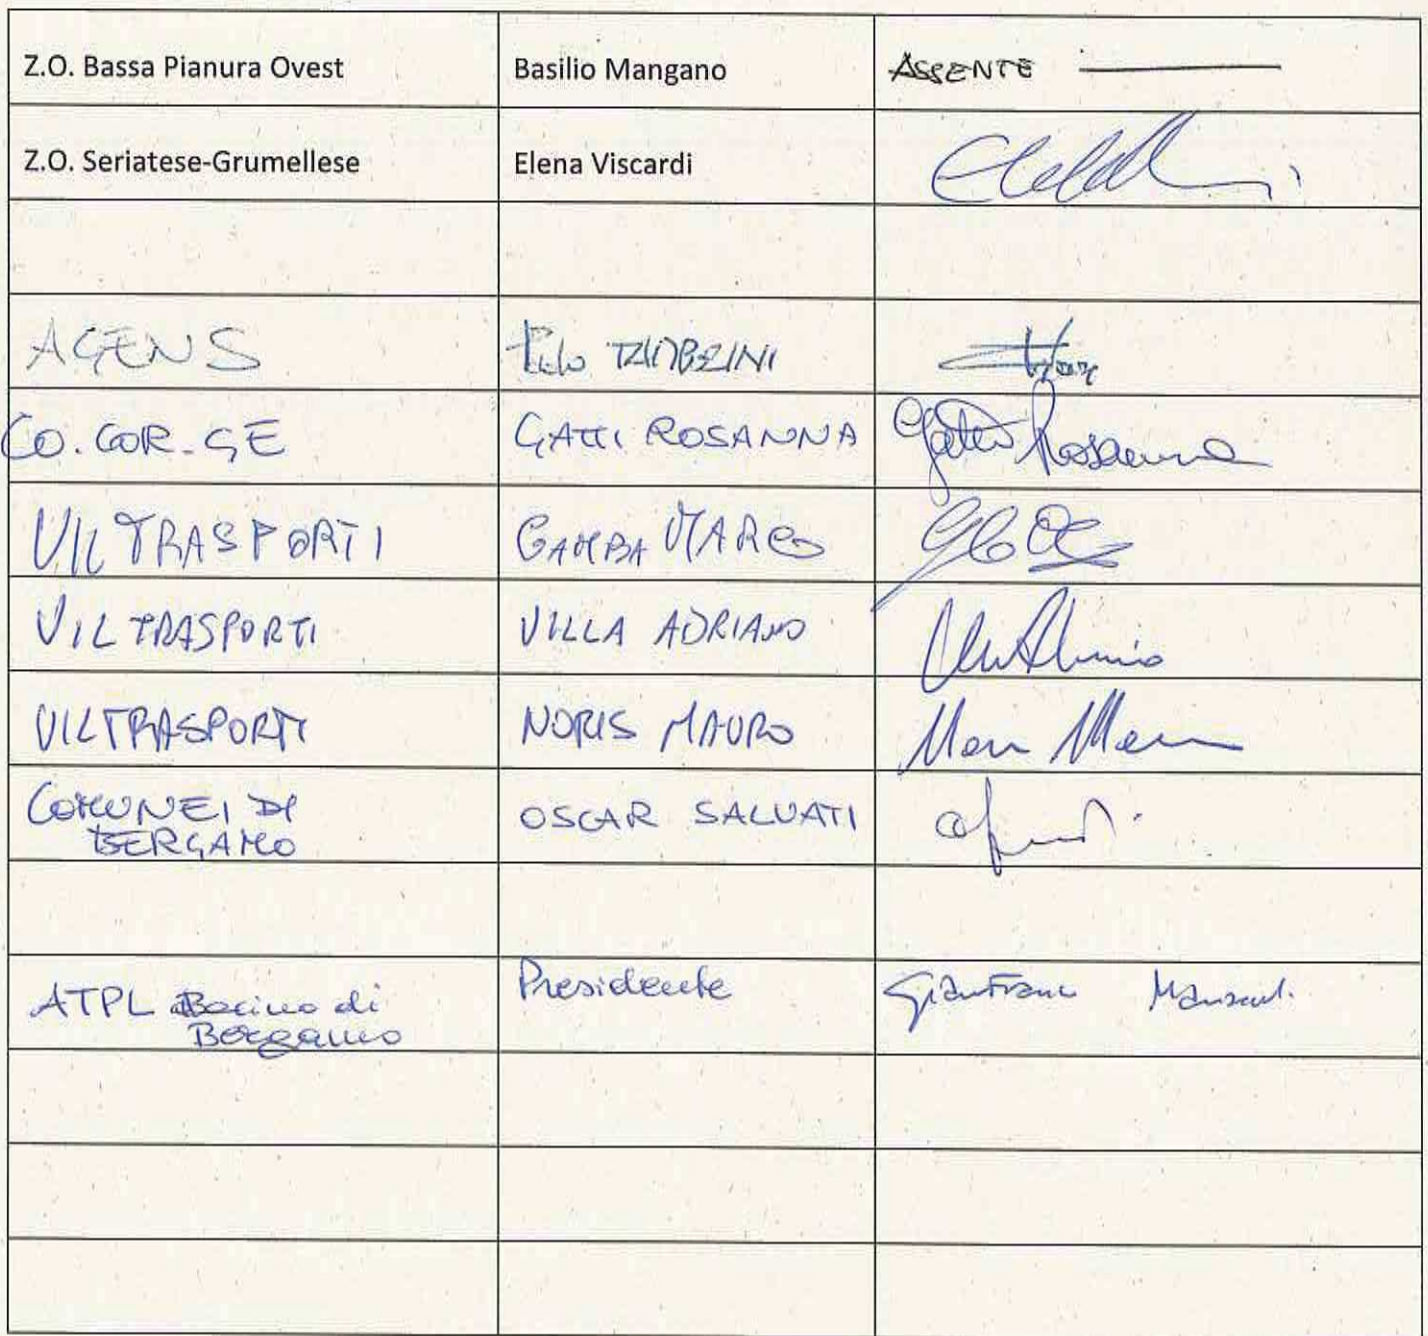 Z.O. Bassa Pianura Ovest Basilio Mangano ASSENTE
Z.O. Seriatese-Grumellese Elena Viscardi
AGENS
CO.COR.GE GATTI ROSANNA Gatti Rosanna
UILTRASPORTI GAMBA MARCO
UILTRASPORTI VILLA ADRIANO
UILTRASPORTI NORIS MAURO
COMUNE DI OSCAR SALVATI
BERGAMO
ATPL Bacino di Presidente Gianfranco
Bergamo